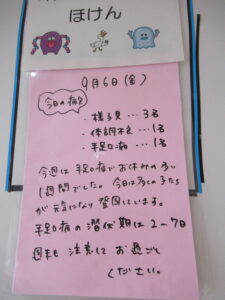 ほけん
9月6日(金)
今日の病欠
・様子見…3名
・体調不良…1名
・手足口病…1名
今週は手足口病でお休みの多い
1週間でした。今日は多くの子たち
が元気になり登園しています。
手足口病の潜伏期は2-7日
週末も注意してお過ごし
ください。